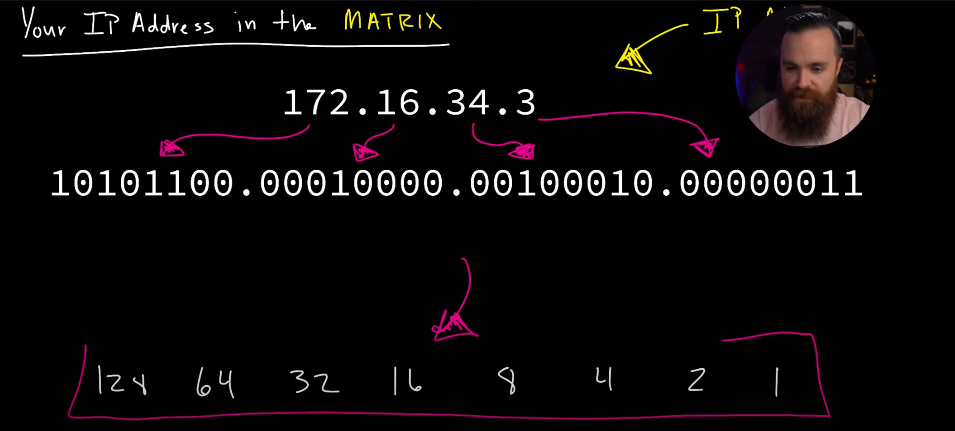 Your IP Address in the MATRIX
IP
172.16.34.3
10101100.00010000.00100010.00000011
128 64 32 16 8 4 2 1